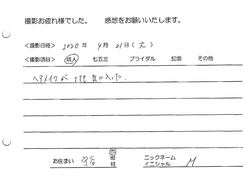 撮影お疲れ様でした。 感想をお願いいたします。
＜撮影日時＞ 2020年 4月 21日(火)
＜撮影項目＞ 成人 七五三 ブライダル 記念 その他
ヘアメイクが 気に入った。
お住まい 守谷 市 町 村 ニックネーム イニシャル M